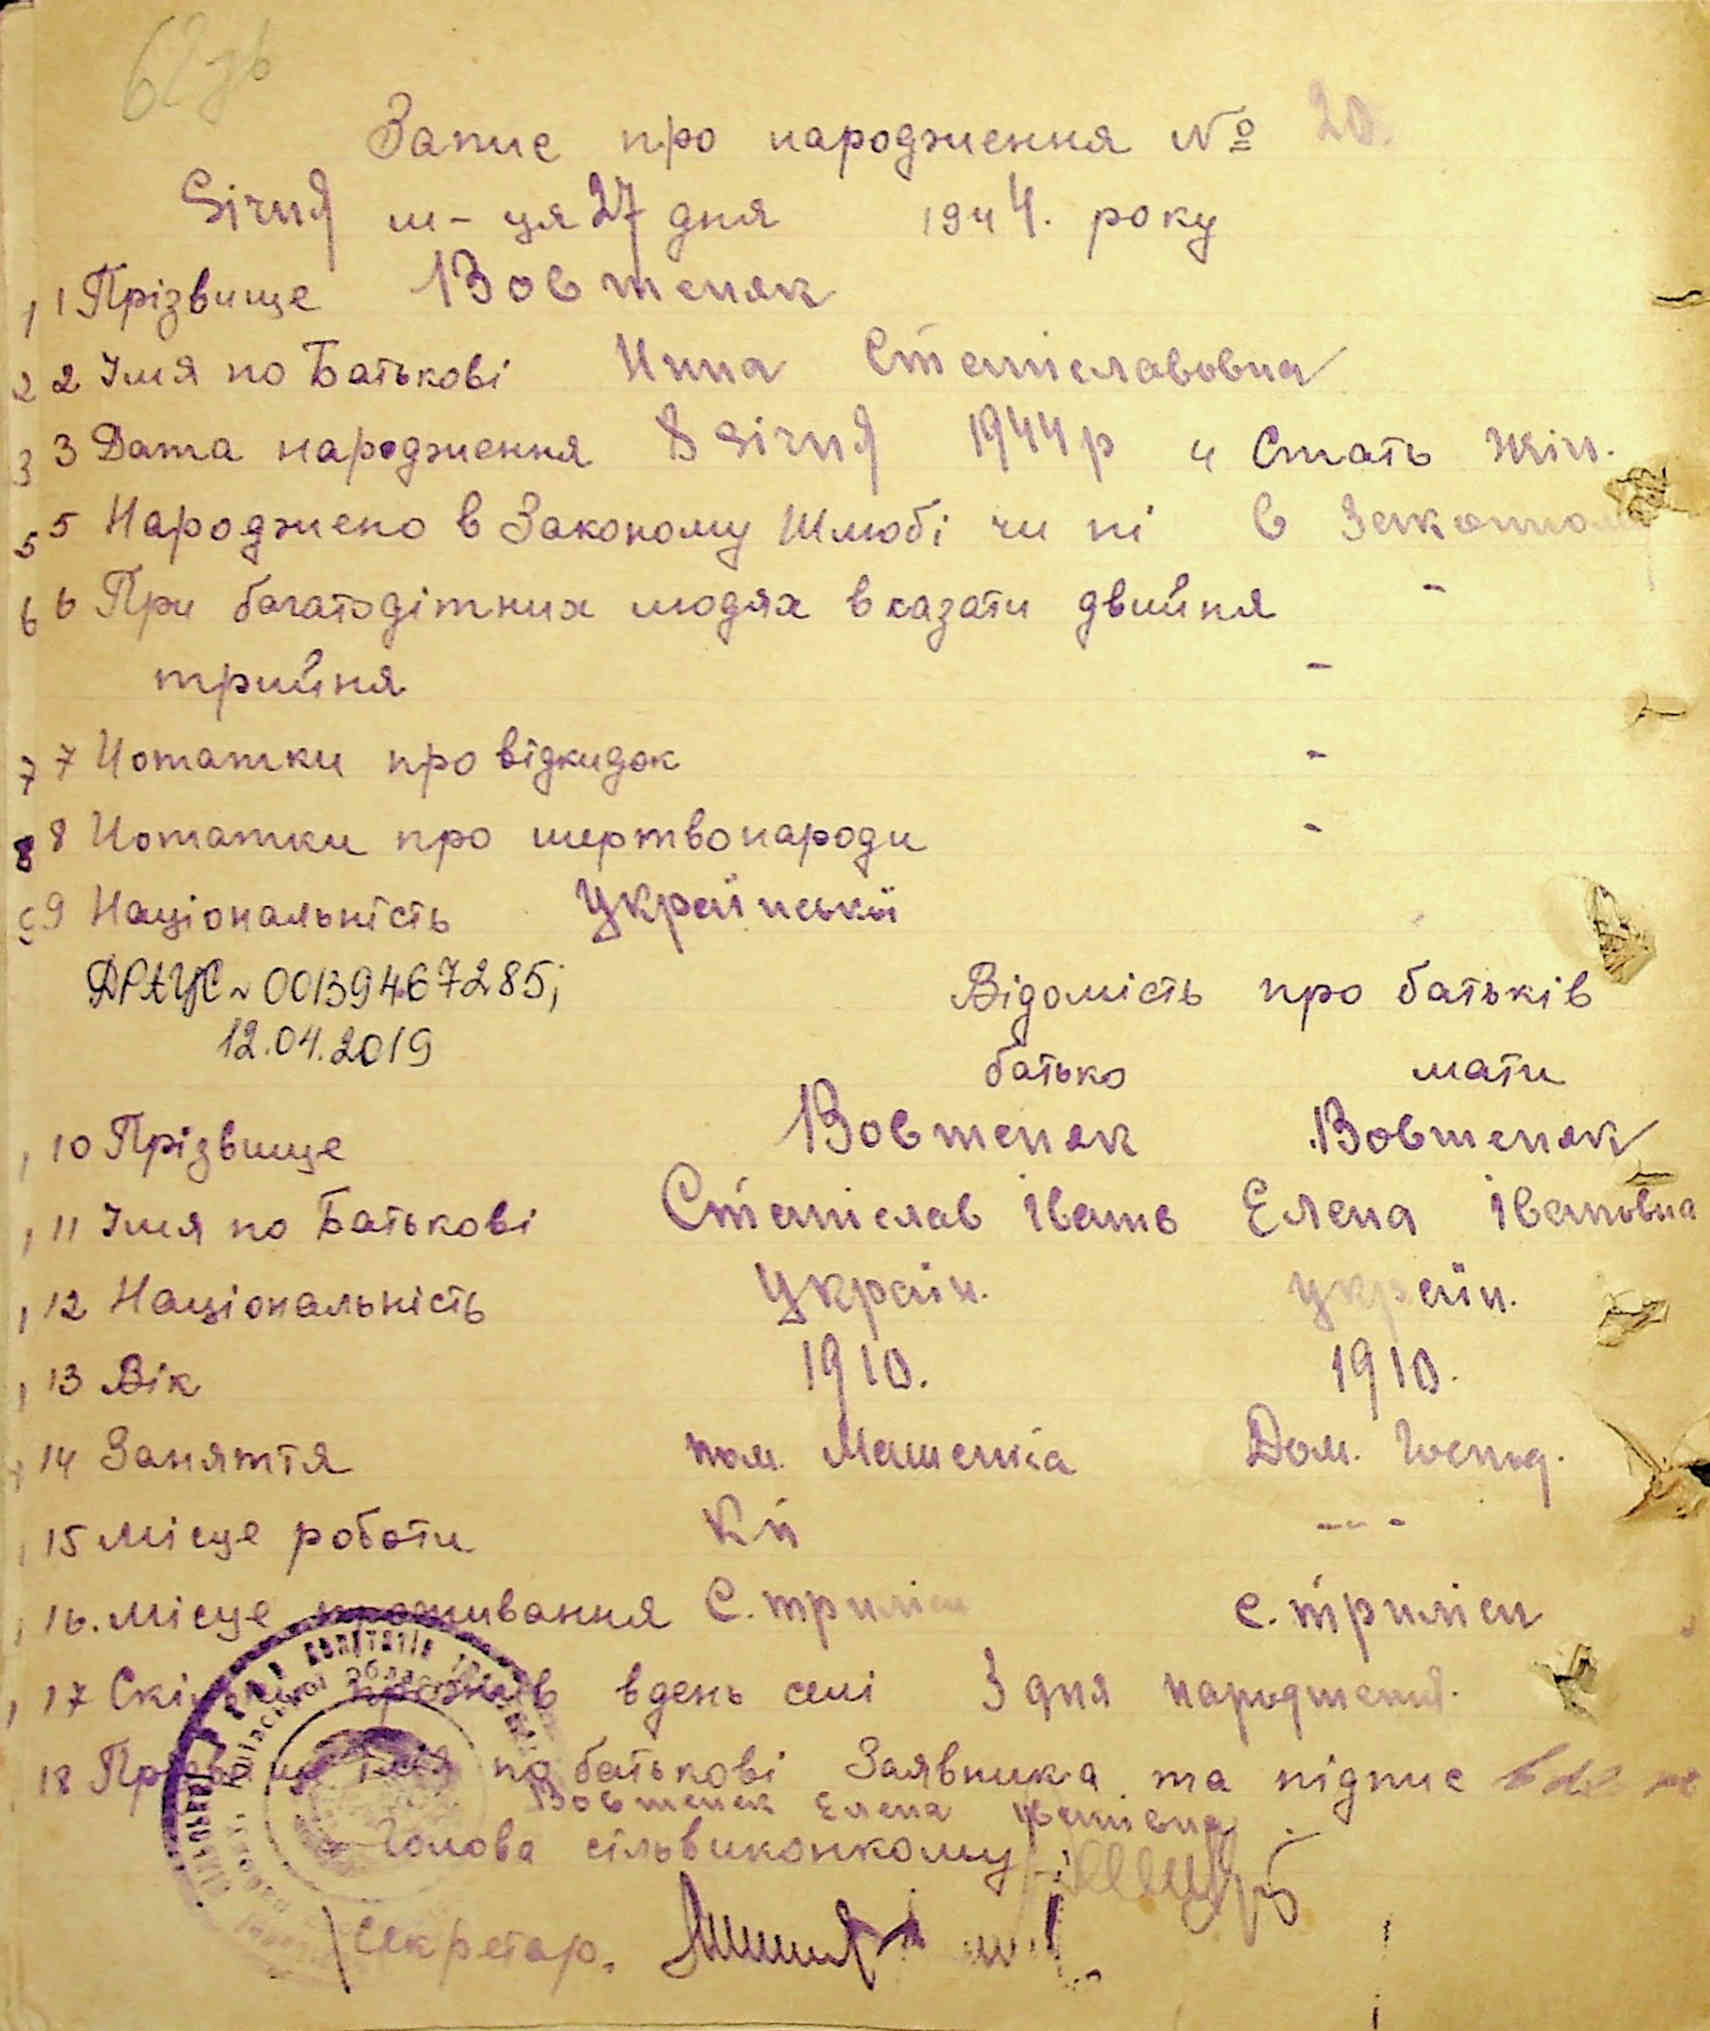 Запис про народження № 20.
Січня м-ця 27 дня 1944. року
1 1 Прізвище Вовтеняк
2 2 Імя по Батькові Нина Станіславовна
3 3 Дата народження 8 Січня 1944 р 4 Стать жін.
5 5 Народжено в Законому Шлюбі чи ні в Законном
6 6 При багатодітних людях вказати двийня -
трийня -
7 7 Нотатки про відкидок -
8 8 Нотатки про мертвонароди -
9 9 Національність Українській
ДРАЦС 00139467285;
12.04.2019
Відомість про батьків
батько мати
10 Прізвище Вовтеняк Вовтеняк
11 Імя по Батькові Станіслав Івано Елена Івановна
12 Національність Україн. Україн.
13 Вік 1910. 1910.
14 Заняття пом. Дом. господ.
15 Місце роботи - - -
16. Місце проживання С. Триліси с. Триліси
17 прожив вдень семі З дня народження.
18 Імя по батькові Заявника та підпис
Вовтенек Елена
Голова сільвиконкому
Секретар.